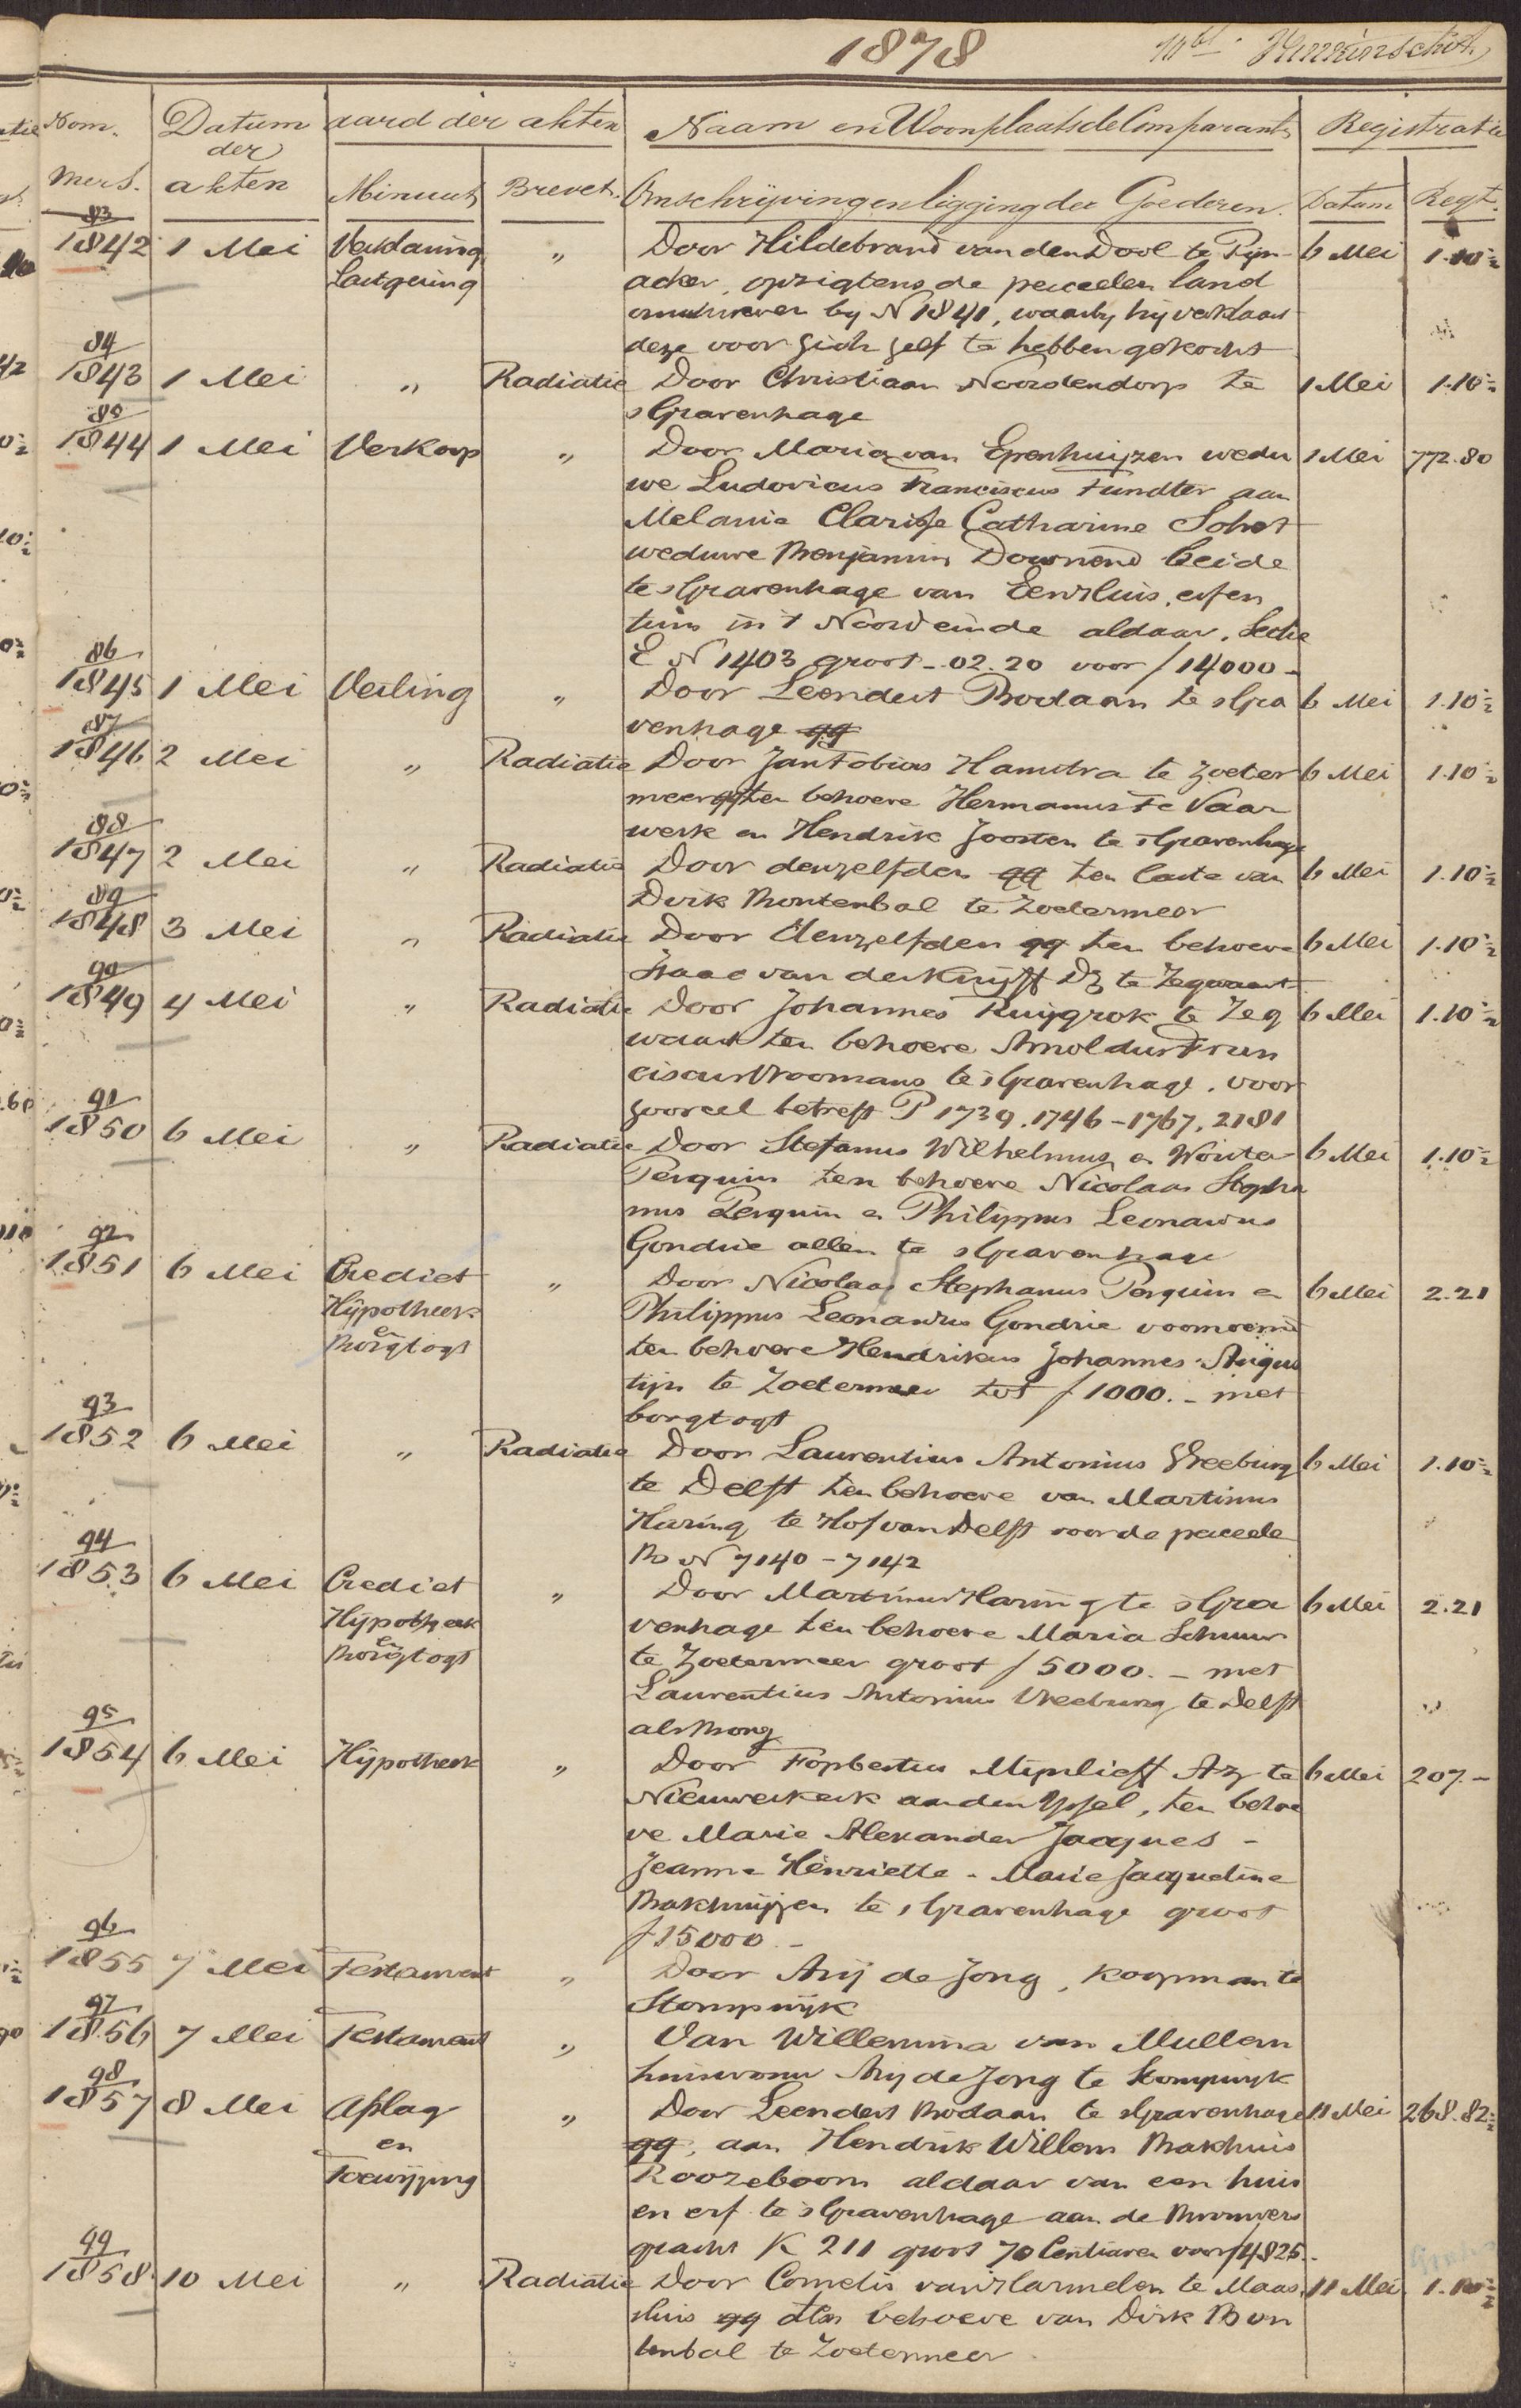 1878
Nom. Datum aard der akten Naam en Woonplaats de Comparants Registratie
der
mers. akten Minuut Brevet. Omschrijving en ligging der Goederen. Datum Regt.
83
1842 1 Mei Verklaring „ Door Hildebrand van den Dool te Pijn- 6 Mei 1.10½
Lastgeving acker, opzigtens de perceelen land
omschreven bij N 1841, waarbij hij verklaart
deze voor zich zelf te hebben gekocht
84
1843 1 Mei „ Radiatie Door Christiaan Noordendorp te 1 Mei 1.10½
sGravenhage
85
1844 1 Mei Verkoop „ Door Maria van Epenhuijzen wedu 1 Mei 772.80
we Ludovicus Franciscus Fundter aan
Melanie Clarisse Catharine Sohet
weduwe Benjamin Downend beide
te sGravenhage van Een Huis, erf en
tuin in 't Noordeinde aldaar, Sectie
E N 1403 groot - 02.20 voor f 14000 -
86
1845 1 Mei Veiling „ Door Leendert Bodaan te sGra 6 Mei 1.10½
venhage qq
87
1846 2 Mei „ Radiatie Door Jan Tobias Hamstra te Zoeter 6 Mei 1.10½
meer qq ten behoeve Hermanus te Vaar
werk en Hendrik Joosten te sGravenhage
88
1847 2 Mei „ Radiatie Door denzelfden qq ten laste van 6 Mei 1.10½
Dirk Bontenbal te Zoetermeer
89
1848 3 Mei „ Radiatie Door denzelfden qq ten behoeve 6 Mei 1.10½
Isaac van der Knijff Dz te Zegwaart
90
1849 4 Mei „ Radiatie Door Johannes Ruijgrok te Zeg 6 Mei 1.10½
waart ten behoeve Arnoldus Fran
ciscus Vroomans te sGravenhage, voor
zooveel betreft P 1739, 1746 - 1767, 2181
91
1850 6 Mei „ Radiatie Door Stefanus Wilhelmus en Wouter 6 Mei 1.10½
Perquin ten behoeve Nicolaas Stepha
nus Perquin en Philippus Leonardus
Gondrie allen te sGravenhage
92
1851 6 Mei Crediet „ Door Nicolaas Stephanus Perquin en 6 Mei 2.21
Hijpotheek Philippus Leonardus Gondrie voornoemd
en
Borgtogt ten behoeve Hendrikus Johannes Augus
tijn te Zoetermeer tot f 1000. - met
borgtogt
93
1852 6 Mei „ Radiatie Door Laurentius Antonius Vreeburg 6 Mei 1.10½
te Delft ten behoeve van Martinus
Haring te Hof van Delft voor de perceele
B N 7140 - 7142
94
1853 6 Mei Crediet „ Door Martinus Haring te sGra 6 Mei 2.21
Hijpotheek venhage ten behoeve Maria Schuur
en
Borgtogt te Zoetermeer groot f 5000. - met
Laurentius Antonius Vreeburg te Delft
als Borg
95
1854 6 Mei Hijpotheek „ Door Fopbertus Mijnlieff Az te 6 Mei 207.-
Nieuwerkerk aan den IJssel, ten behoe
ve Marie Alexander Jacques -
Jeanne Henriette - Marie Jacqueline
Bakhuijzen te sGravenhage groot
f 15000. -
96
1855 7 Mei Testament „ Door Arij de Jong, koopman te
Stompwijk
97
1856 7 Mei Testament „ Van Willemina van Mullem
huisvrouw Arij de Jong te Stompwijk
98
1857 8 Mei Afslag „ Door Leendert Bodaan te sGravenhage 11 Mei 268.82½
en qq, aan Hendrik Willem Bakhuis
Toewijzing Roozeboom aldaar van een huis
en erf te sGravenhage aan de Brouwers
gracht K 211 groot 70 Centiaren voor f 4825.-
99
1858 10 Mei „ Radiatie Door Cornelis van Harmelen te Maas 11 Mei 1.10½
sluis qq ten behoeve van Dirk Bon
tenbal te Zoetermeer